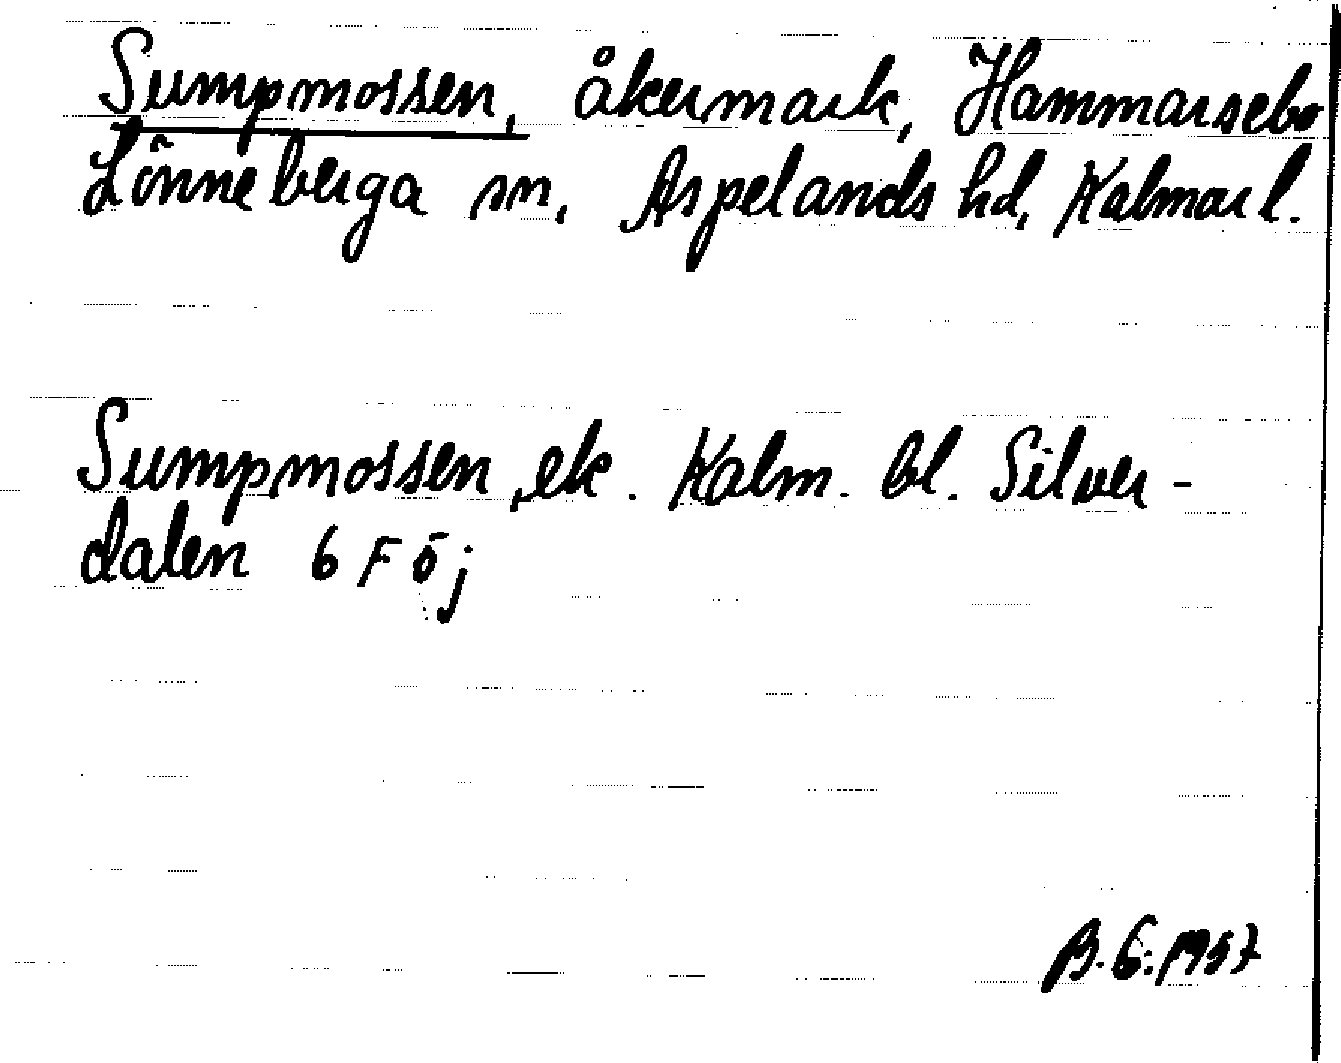 Sumpmossen, åkermark, Hammarsebo
Lönneberga sn, Aspelands hd, Kalmar l.
Sumpmossen, ek. Kalm. bl. Silver-
dalen 6 F ö j
B. G. 1957